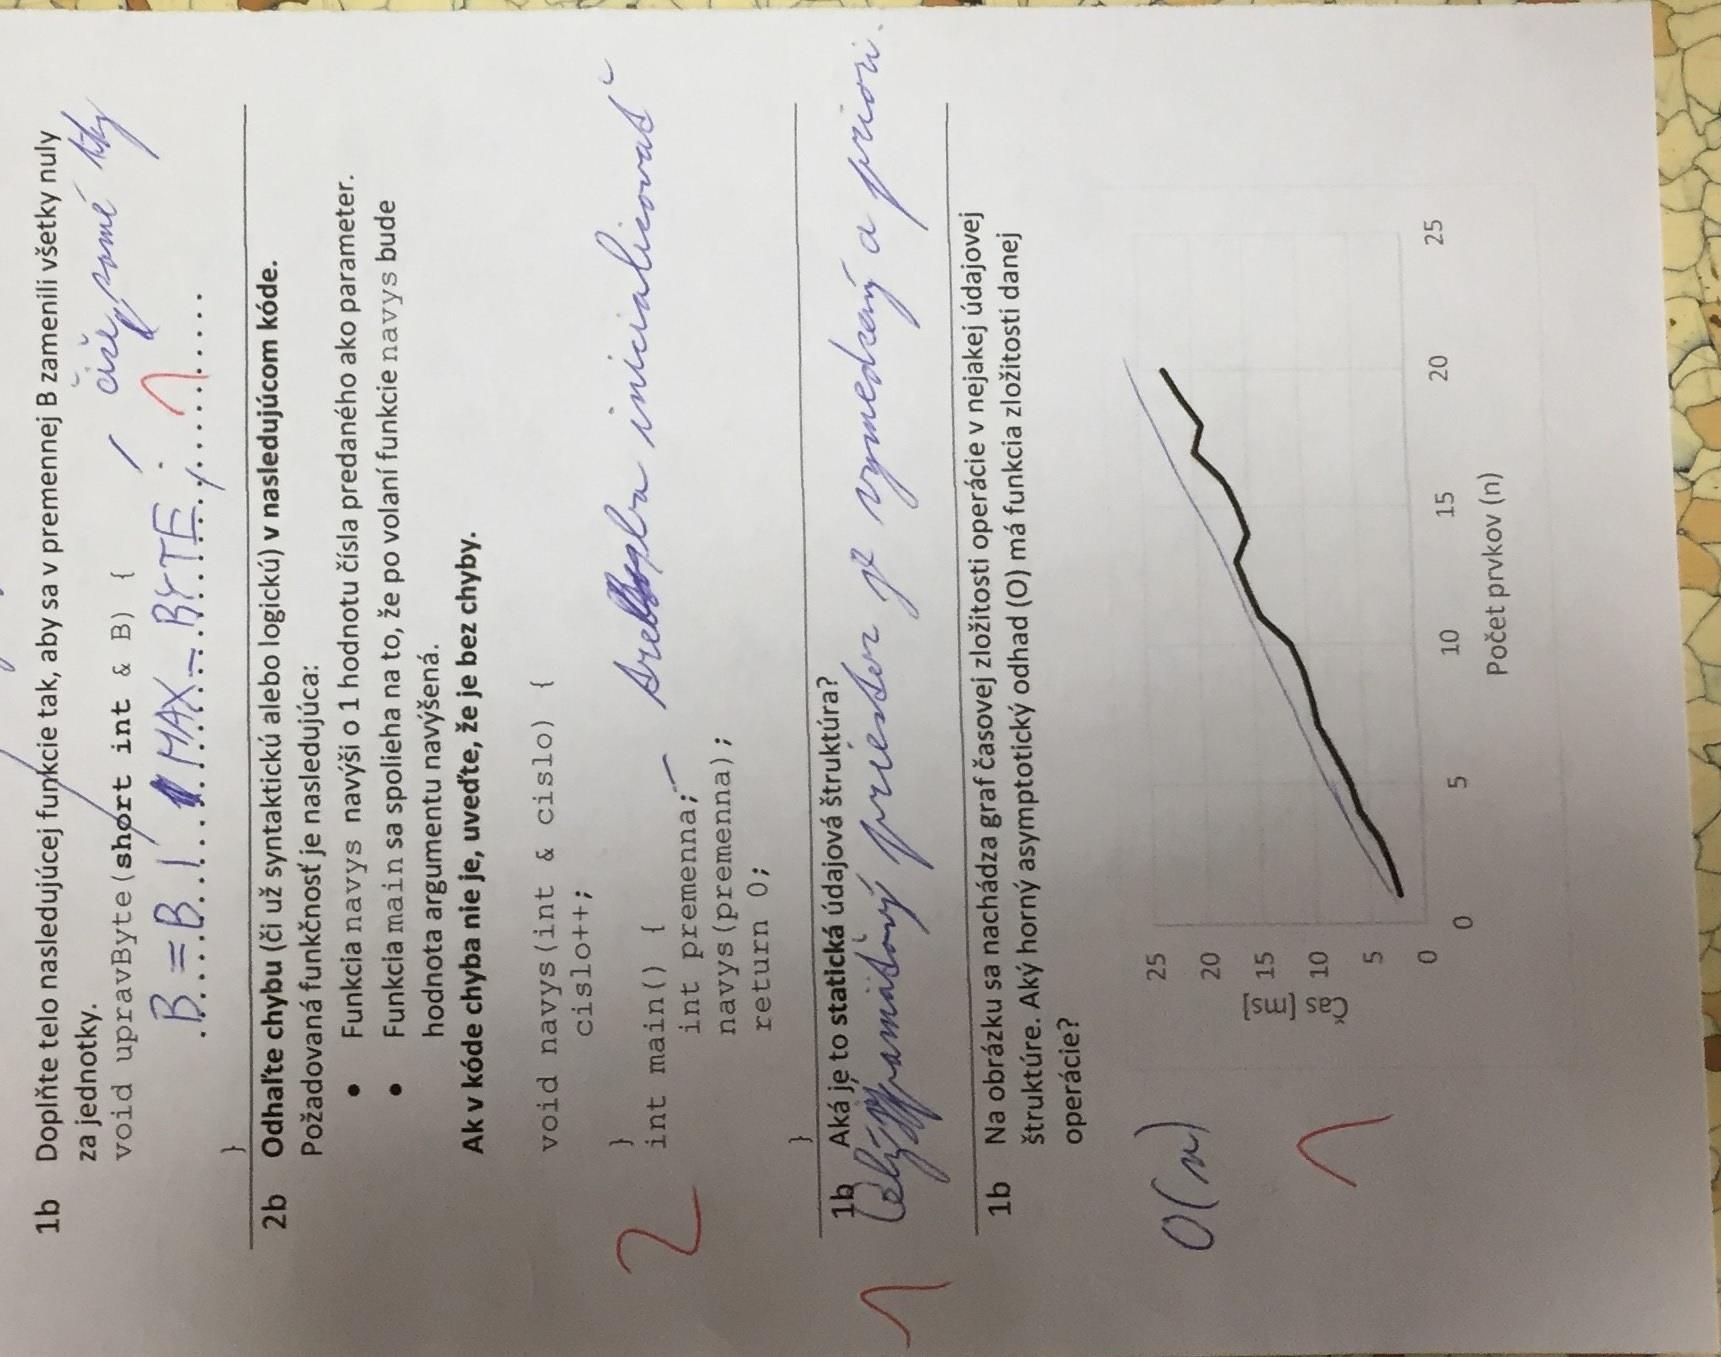 1b Doplňte telo nasledujúcej funkcie tak, aby sa v premennej B zamenili všetky nuly
za jednotky.
čiže samé
void upravByte(short int & B) {
B = B | MAX_BYTE; 1
}
2b Odhaľte chybu (či už syntaktickú alebo logickú) v nasledujúcom kóde.
Požadovaná funkčnosť je nasledujúca:
• Funkcia navys navýši o 1 hodnotu čísla predaného ako parameter.
• Funkcia main sa spolieha na to, že po volaní funkcie navys bude
hodnota argumentu navýšená.
Ak v kóde chyba nie je, uveďte, že je bez chyby.
void navys(int & cislo) {
cislo++;
}
2
int main() {
int premenna; – treba inicializovať
navys(premenna);
return 0;
}
1b Aká je to statická údajová štruktúra?
1 Celý pamäťový priestor je vymedzený a priori.
1b Na obrázku sa nachádza graf časovej zložitosti operácie v nejakej údajovej
štruktúre. Aký horný asymptotický odhad (O) má funkcia zložitosti danej
operácie?
O(n)
1
Čas [ms]
25
20
15
10
5
0
0 5 10 15 20 25
Počet prvkov (n)